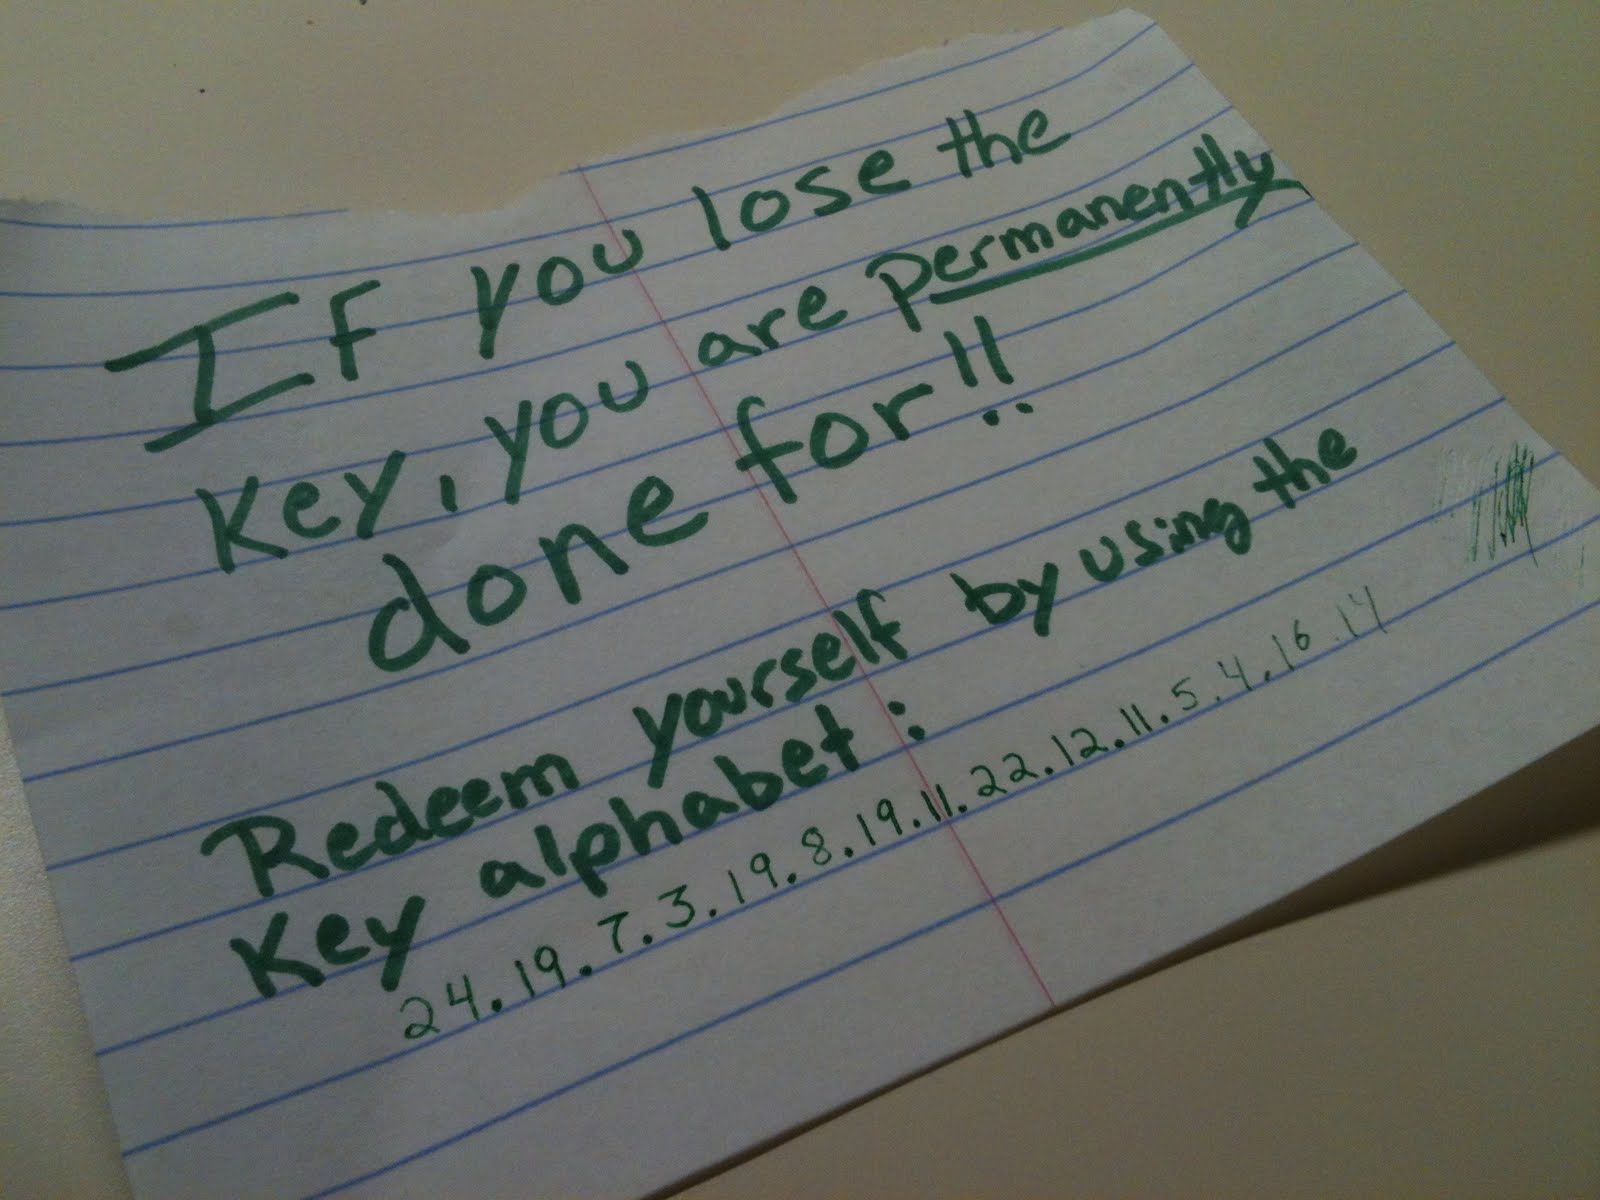 If you lose the
key, you are permanently
done for!!
Redeem yourself by using the
Key alphabet:
24.19.7.3.19.8.19.11.22.12.11.5.4.16.14